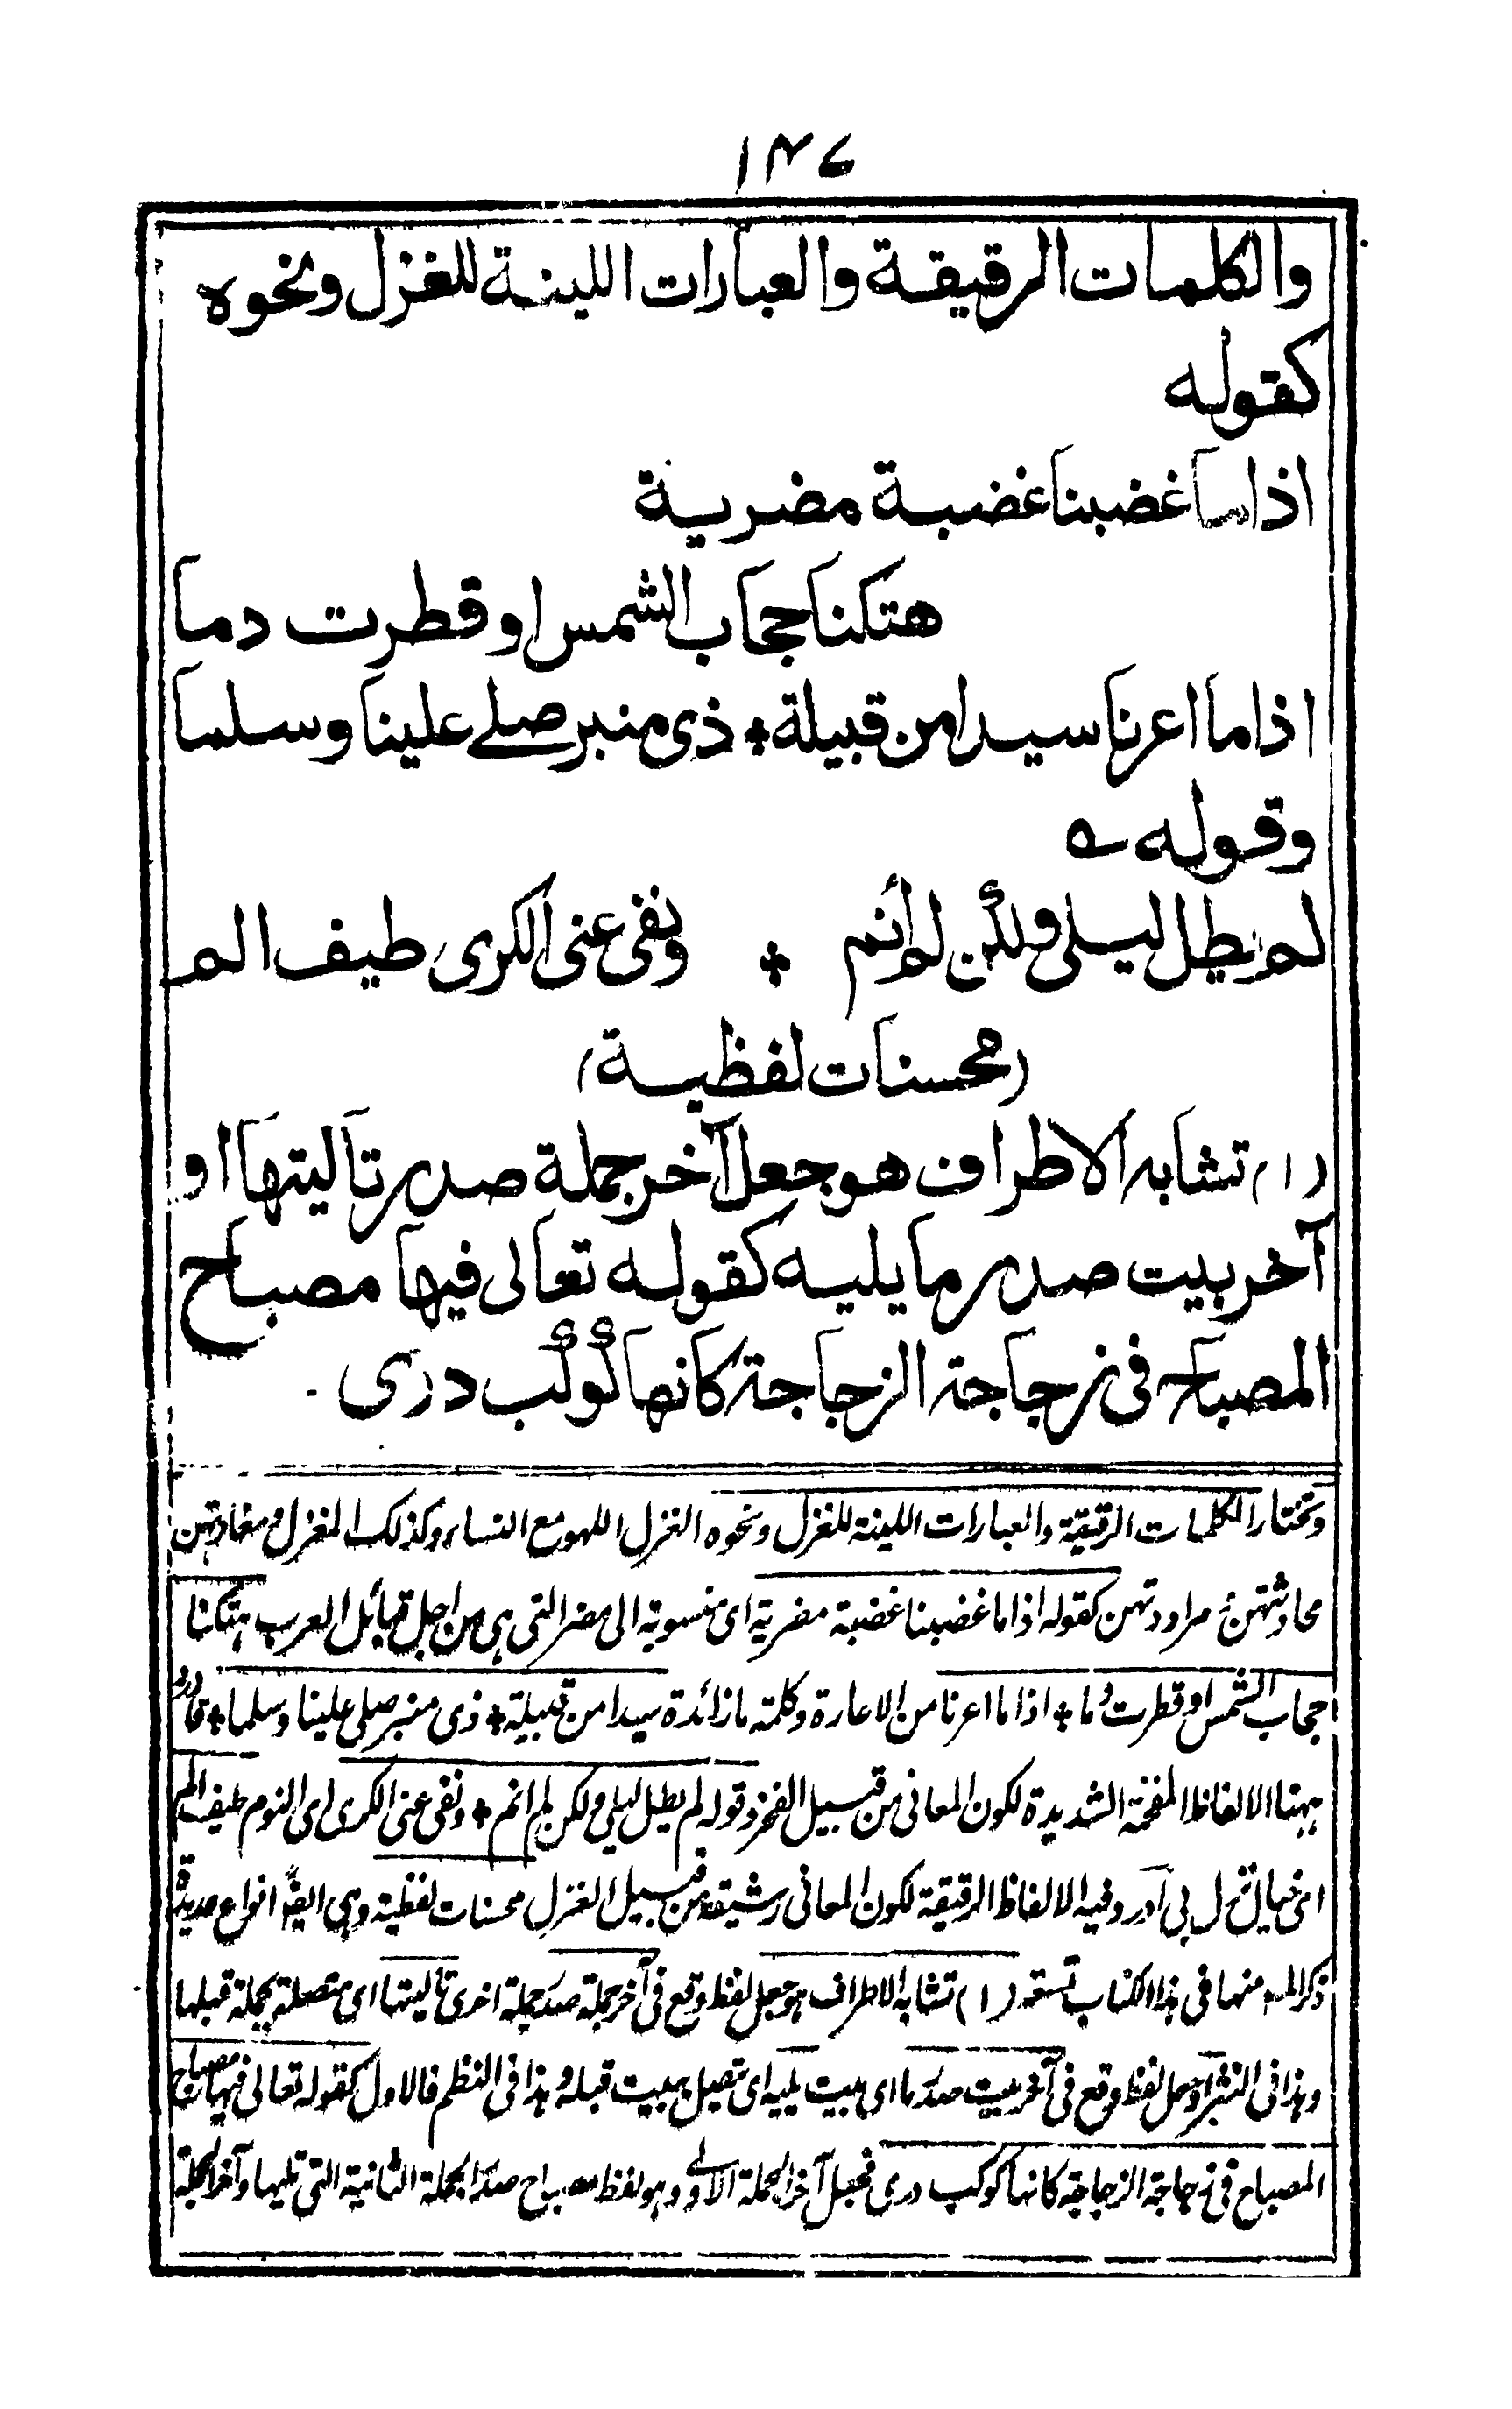 ١٤٧
والكلمات الرقيقة والعبارات اللينة للغزل ونحوه
كقوله
اذا ما غضبنا غضبة مضرية
هتكنا حجاب الشمس او قطرت دما
اذا ما اعرنا سيدا من قبيلة ٭ ذى منبر صلے علينا وسلما
وقوله ـه
لم يطل ليلى ولكن لم أنم ٭ ونفى عنى الكرى طيف الم
(محسنات لفظية)
(١) تشابه الاطراف هو جعل آخر جملة صدر تاليتها او
آخر بيت صدر ما يليه كقوله تعالى فيها مصباح
المصباح فى زجاجة الزجاجة كانها كوكب درى .
وتختار الكلمات الرقيقة والعبارات اللينة للغزل ونحوه الغزل اللهو مع النساء وكذلك المغزل ومغازلتهن
محادثتهن و مراودتهن كقوله اذا ما غضبنا غضبة مضرية اى منسوبة الى مضر التى هى من اجل قبائل العرب هتكنا
حجاب الشمس او قطرت دما ٭ اذا ما اعرنا من الاعارة وكلمة ما زائدة سيدا من قبيلة ٭ ذى منبر صلى علينا وسلما ٭
ههنا الالفاظ المفخمة الشديدة لكون المعانى من قبيل الفخر وقوله لم يطل ليلى ولكن لم انم ٭ ونفى عنى الكرى اى النوم طيف الم
اى خيال نزل بى اورد فيه الالفاظ الرقيقة لكون المعانى رشيقة من قبيل الغزل محسنات لفظية وهى ايضا انواع عديدة
ذكر المص منها فى هذا الكتاب تسعة (١) تشابه الاطراف هو جعل لفظ وقع فى آخر جملة صدر جملة اخرى تاليتها اى متصلة بجملة قبلها
وهذا فى النثر او جعل لفظ وقع فى آخر بيت صدر ما اى بيت يليه اى متصل ببيت قبله وهذا فى النظم فالاول كقوله تعالى فيها مصباح
المصباح فى زجاجة الزجاجة كانها كوكب درى فجعل آخر الجملة الاولے وهو لفظ مصباح صدر الجملة الثانية التى تليها وآخر الجملة